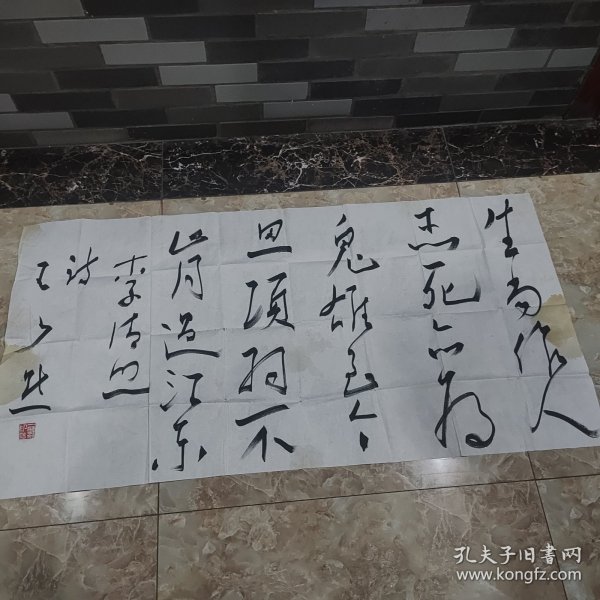 生当作人
杰死亦为
鬼雄至今
思项羽不
肯過江东
李清照
诗
孔夫子旧书网
www.kongfz.com